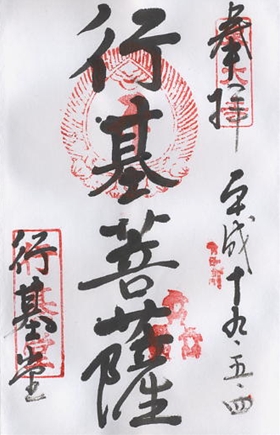 奉拝
平成十九、五、四
行基菩薩
行基堂